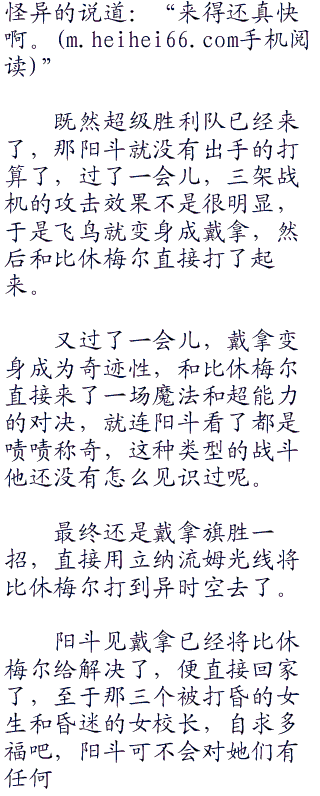 怪异的说道：“来得还真快
啊。(m.heihei66.com手机阅
读)”
既然超级胜利队已经来
了，那阳斗就没有出手的打
算了，过了一会儿，三架战
机的攻击效果不是很明显，
于是飞鸟就变身成戴拿，然
后和比休梅尔直接打了起
来。
又过了一会儿，戴拿变
身成为奇迹性，和比休梅尔
直接来了一场魔法和超能力
的对决，就连阳斗看了都是
啧啧称奇，这种类型的战斗
他还没有怎么见识过呢。
最终还是戴拿旗胜一
招，直接用立纳流姆光线将
比休梅尔打到异时空去了。
阳斗见戴拿已经将比休
梅尔给解决了，便直接回家
了，至于那三个被打昏的女
生和昏迷的女校长，自求多
福吧，阳斗可不会对她们有
任何